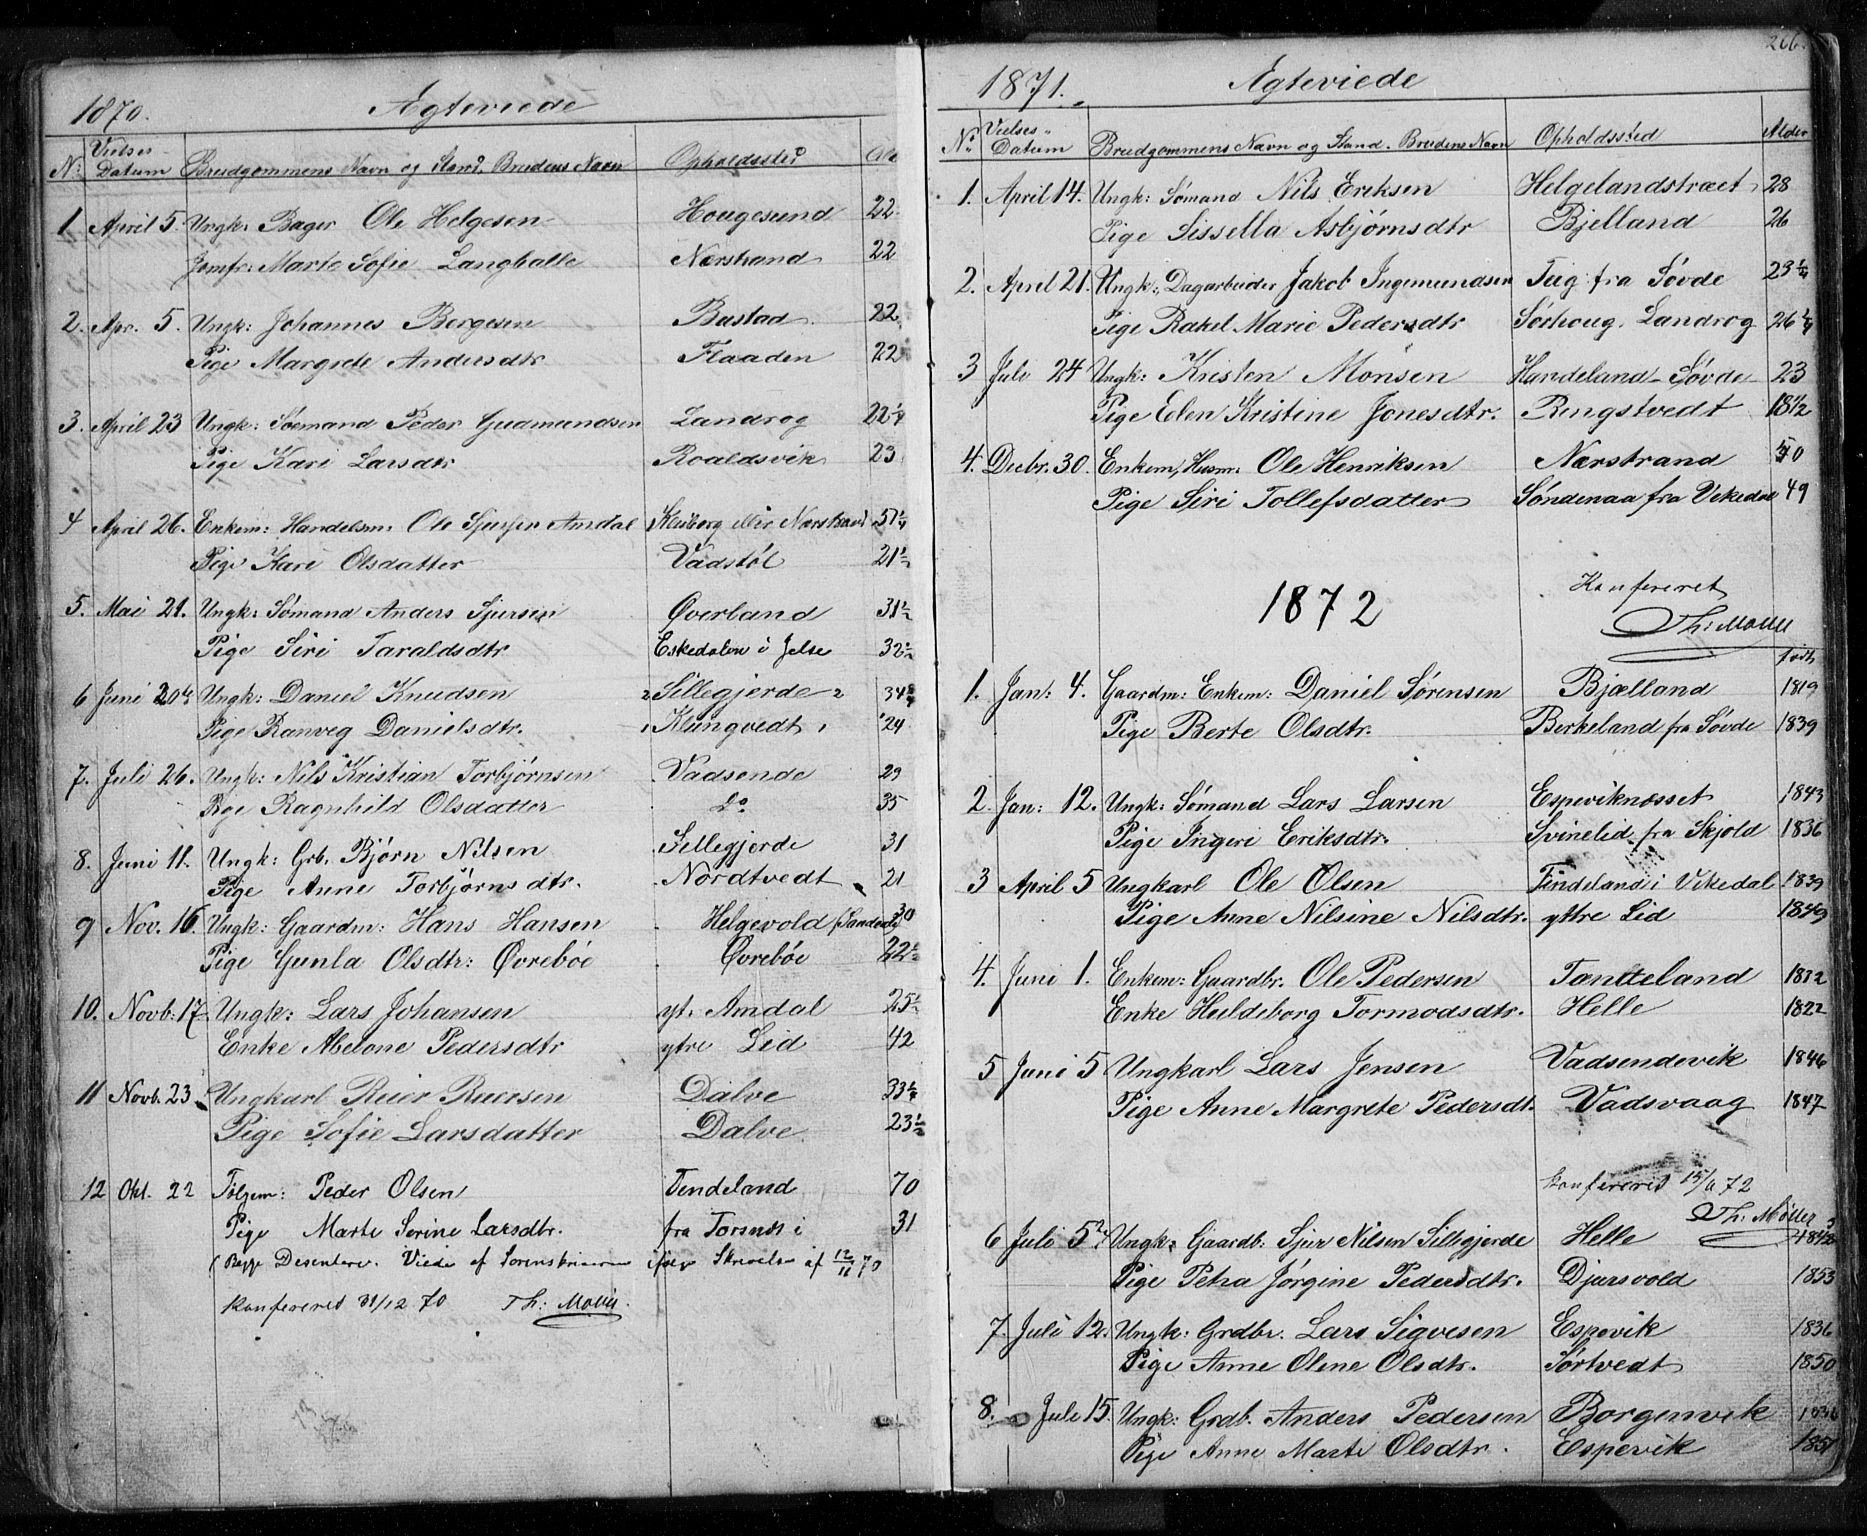 1870. Ægteviede
No Vielses-Datum Brudgommens Navn og Stand, Brudens Navn Opholdssted
1 April 5. Ungk: Bager Ole Helgesen Hougesund 22
Jomfr: Marte Sofie Langballe Nærstrand 22
2. Apr. 5. Ungk: Johannes Børgesen Bastad 22
Pige Margrete Andersdtr Flaaden 22
3. April 23 Ungk: Søemand Peder Gudmundsen Landrog 22 1/4
Pige Kari Larsdtr Roaldsvik 23
4 April 26. Enkem: Handelsm: Ole Sjursen Amdal eller Nærstrand 51 1/4
Pige Kari Olsdatter Vadstøl 21 1/2
5. Mai 21. Ungk: Sømand Anders Sjursen Øverland 31 1/2
Pige Siri Taraldsdtr Eskedalen i Jelse 32 1/2
6 Juni 20de Ungk: Daniel Knudsen Sillegjerde 34
Pige Ranveg Danielsdtr. Klungvedt 24
7. Juli 26. Ungk: Nils Kristian Torbjørnsen Vadsende 29
Pige Ragnhild Olsdatter do 35
8. Juni 11. Ungk: Grb. Bjørn Nilsen Sillegjerde 31
Pige Anne Torbjørnsdtr. Nordtvedt 21
9 Nov. 16. Ungk: Gaardm: Hans Hansen Helgevold 30
Pige Gunla Olsdtr: Øvrebøe Øvrebøe 22 1/2
10. Novb: 17. Ungk: Lars Johansen yt. Amdal 25 1/2
Enke Abelone Pedersdtr ytre Lid 42
11 Novb. 23 Ungkarl Reier Reiersen Dalve 33 1/4
Pige Sofie Larsdatter Dalve 23 1/2
12 Okt. 22 Peder Olsen Tendeland 70
Pige Marte Serine Larsdtr. fra Torsnes i 31
(Begge Desentere. Viede af Sorenskriveren ifølge Skrivelse af 12/11 70
Konfereret 31/12 70 Th: Møller.
266.
1871. Ægteviede
No Vielses-Datum Brudgommens Navn og Stand. Brudens Navn Opholdssted Alder
1. April 14. Ungk: Sømand Nils Eriksen Helgelandstræet 28
Pige Sissella Asbjørnsdtr Bjelland 26
2. April 21. Ungk: Dagarbeider Jakob Ingemundsen Teig fra Søvde 23 1/4
Pige Rakel Marie Pedersdtr Sørhoug, Landrog 26 1/4
3 Juli 24 Ungk: Kristen Monsen Handeland - Søvde 23
Pige Elen Kristine Jonesdtr. Ringstvedt 18 1/2
4. Decbr. 30. Enkem, Husm: Ole Henriksen Nærstrand 50
Pige Siri Tollefsdatter Søndenaa fra Vikedal 49
Konfereret
1872
Th: Møller
født
1. Jan: 4. Gaardm: Enkem: Daniel Sørensen Bjælland 1819
Pige Berte Olsdtr. Berkeland fra Søvde 1839
2. Jan: 12. Ungk: Sømand Lars Larsen Espeviknæsset 1843
Pige Ingeri Eriksdtr. Svinelid fra Skjold 1836
3 April 5 Ungkarl Ole Olsen Tindeland i Vikedal 1839
Pige Anne Nilsine Nilsdtr. yttre Lid 1849
4. Juni 1. Enkem: Gaardbr. Ole Pedersen Tandeland 1832
Enke Huldeborg Tormodsdtr. Helle 1822
5 Juni 5 Ungkarl Lars Jensen Vadsendevik 1846
Pige Anne Margrete Pedersdt. Vadsvaag 1847
Konfereret 15/6 72
Th: Møller
6 Juli 5 Ungk: Gaardb: Sjur Nilsen Sillegjerde Helle
Pige Petra Jørgine Pedersdtr. Djursvold 1853
7. Juli 12. Ungk: Grdbr. Lars Sigvesen Espevik 1836
Pige Anne Oline Olsdtr. Sørtvedt 1850
8. Juli 15. Ungk: Grdb. Anders Pedersen Borgenvik 1836
Pige Anne Marte Olsdtr. Espevik 1851